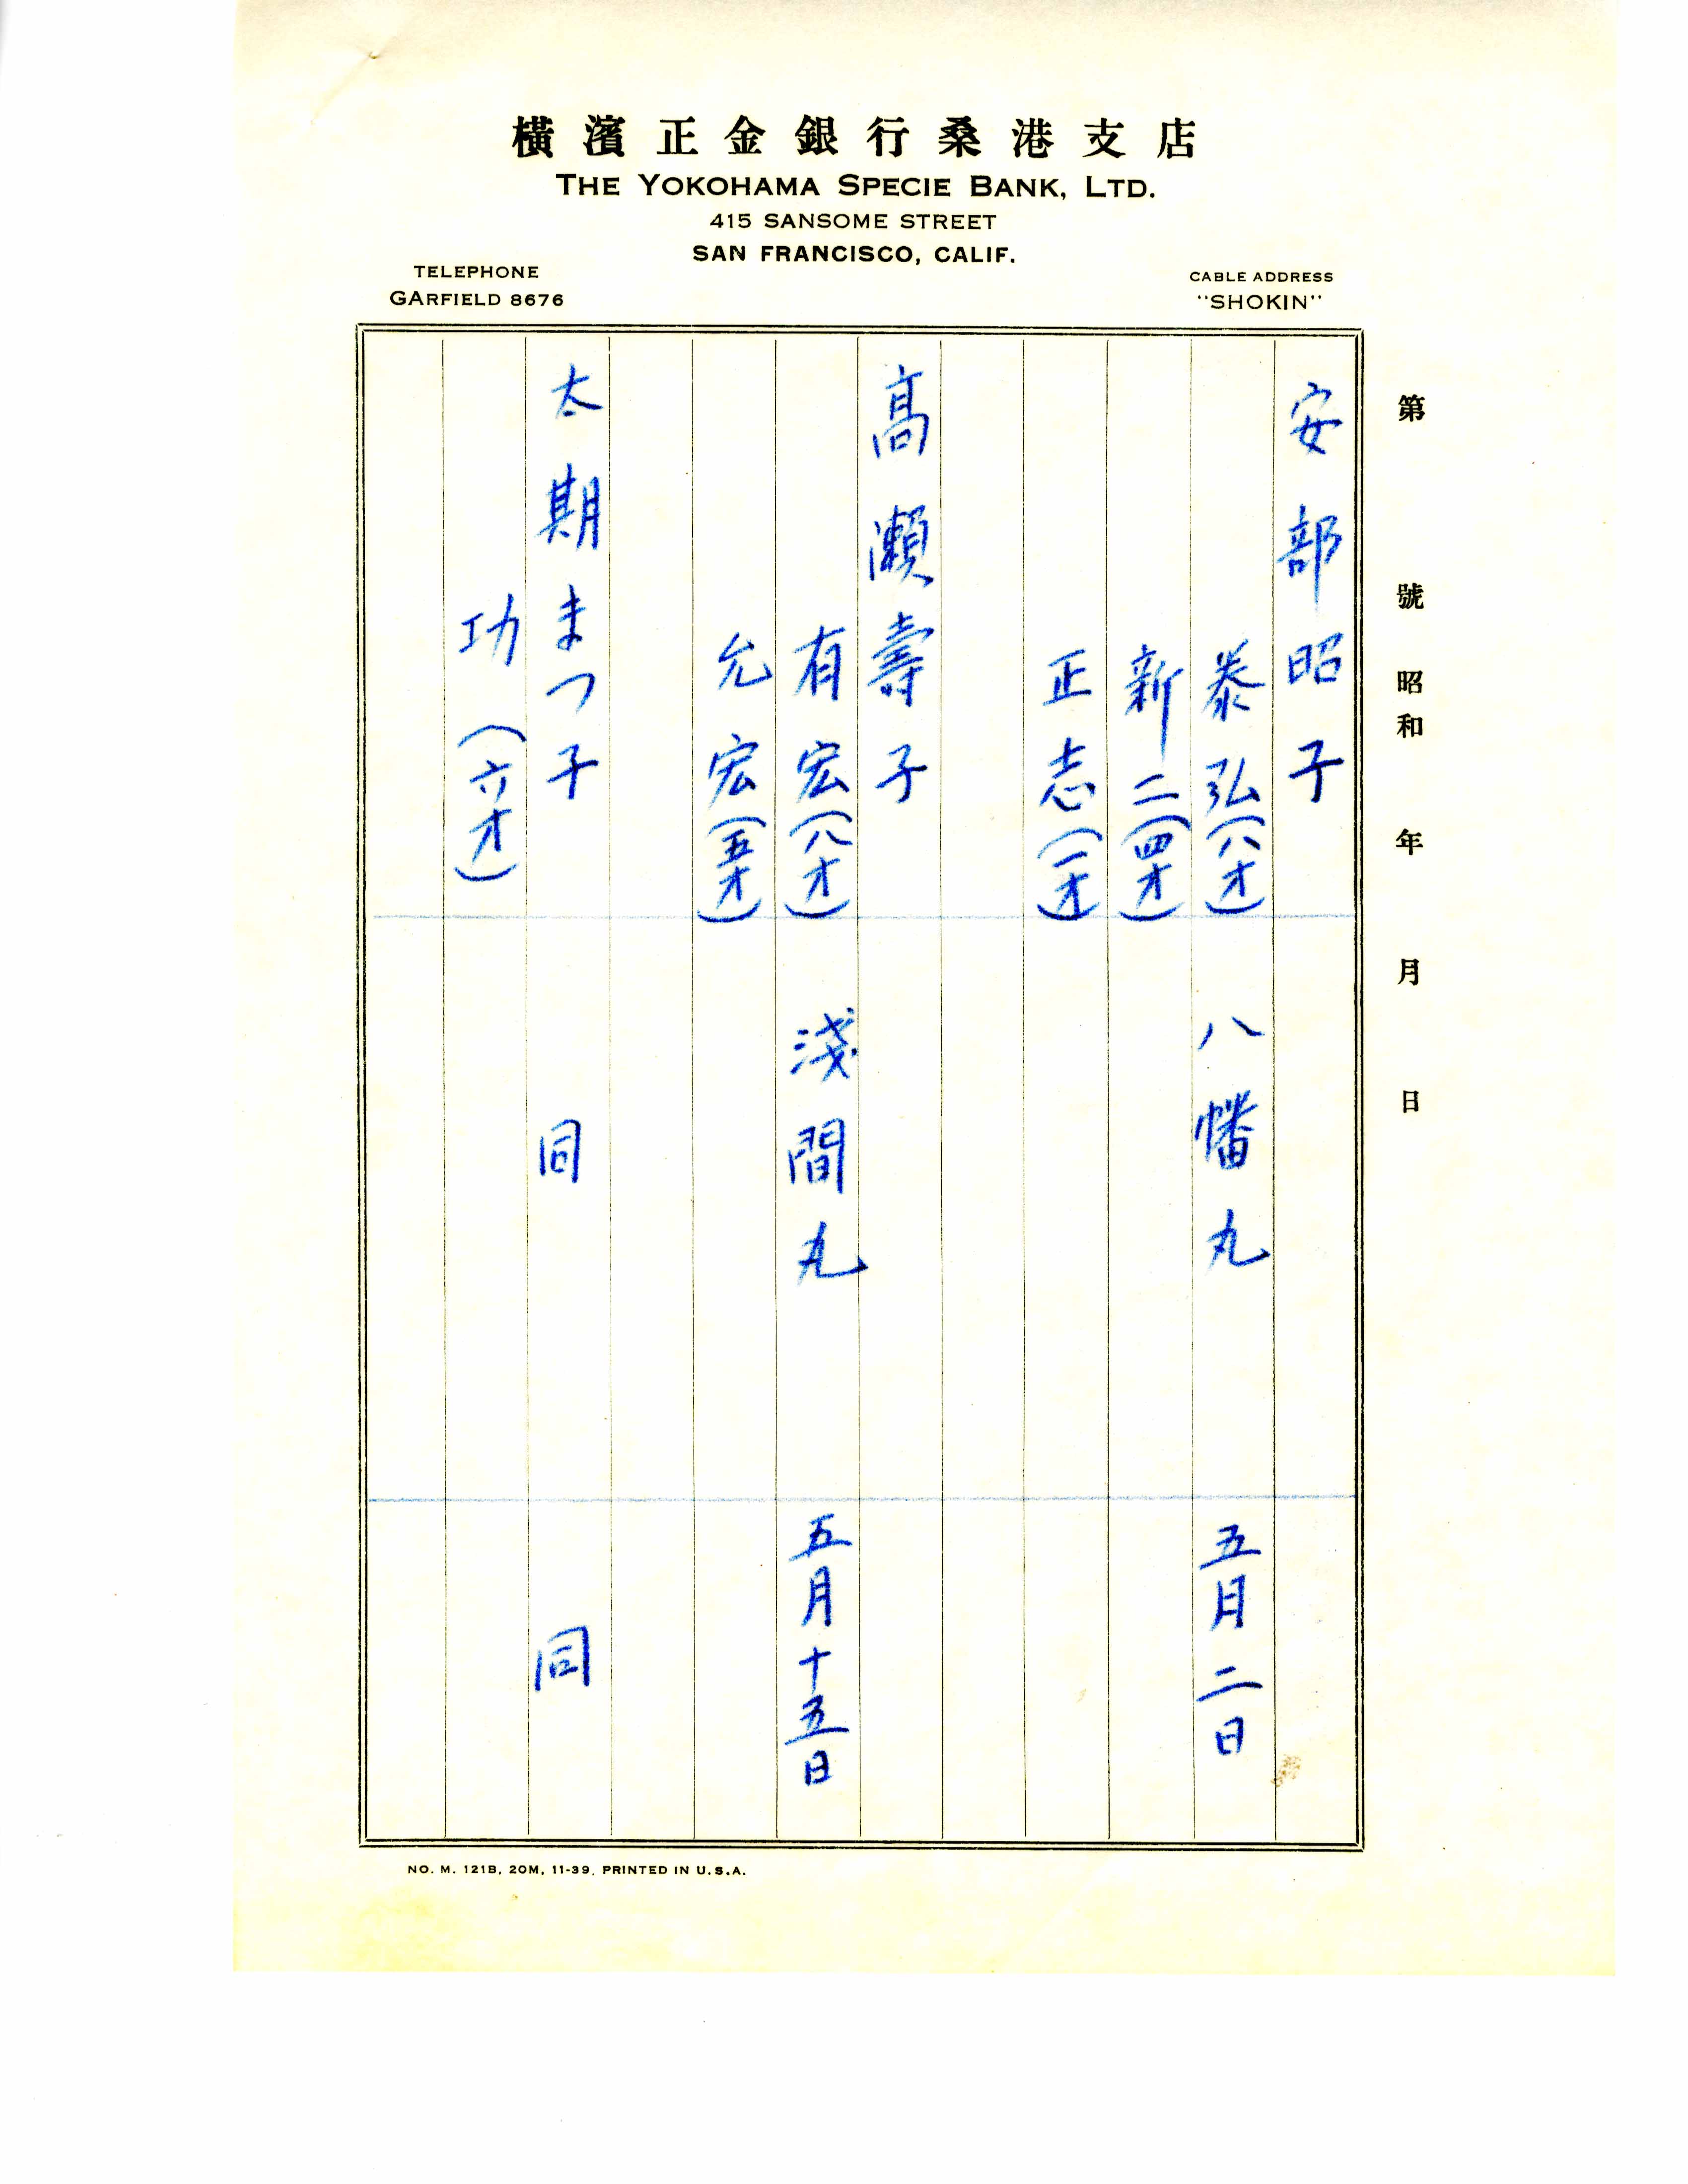 橫濱正金銀行桑港支店
THE YOKOHAMA SPECIE BANK, LTD.
415 SANSOME STREET
SAN FRANCISCO, CALIF.
TELEPHONE
GARFIELD 8676
CABLE ADDRESS
"SHOKIN"
第 號 昭和 年 月 日
安部昭子
泰弘(八才) 八幡丸 五月二日
新二(四才)
正志(一才)
髙瀬壽子
有宏(八才) 淺間丸 五月十五日
允宏(五才)
太期まつ子 同 同
功(六才)
NO. M. 121B, 20M, 11-39, PRINTED IN U.S.A.